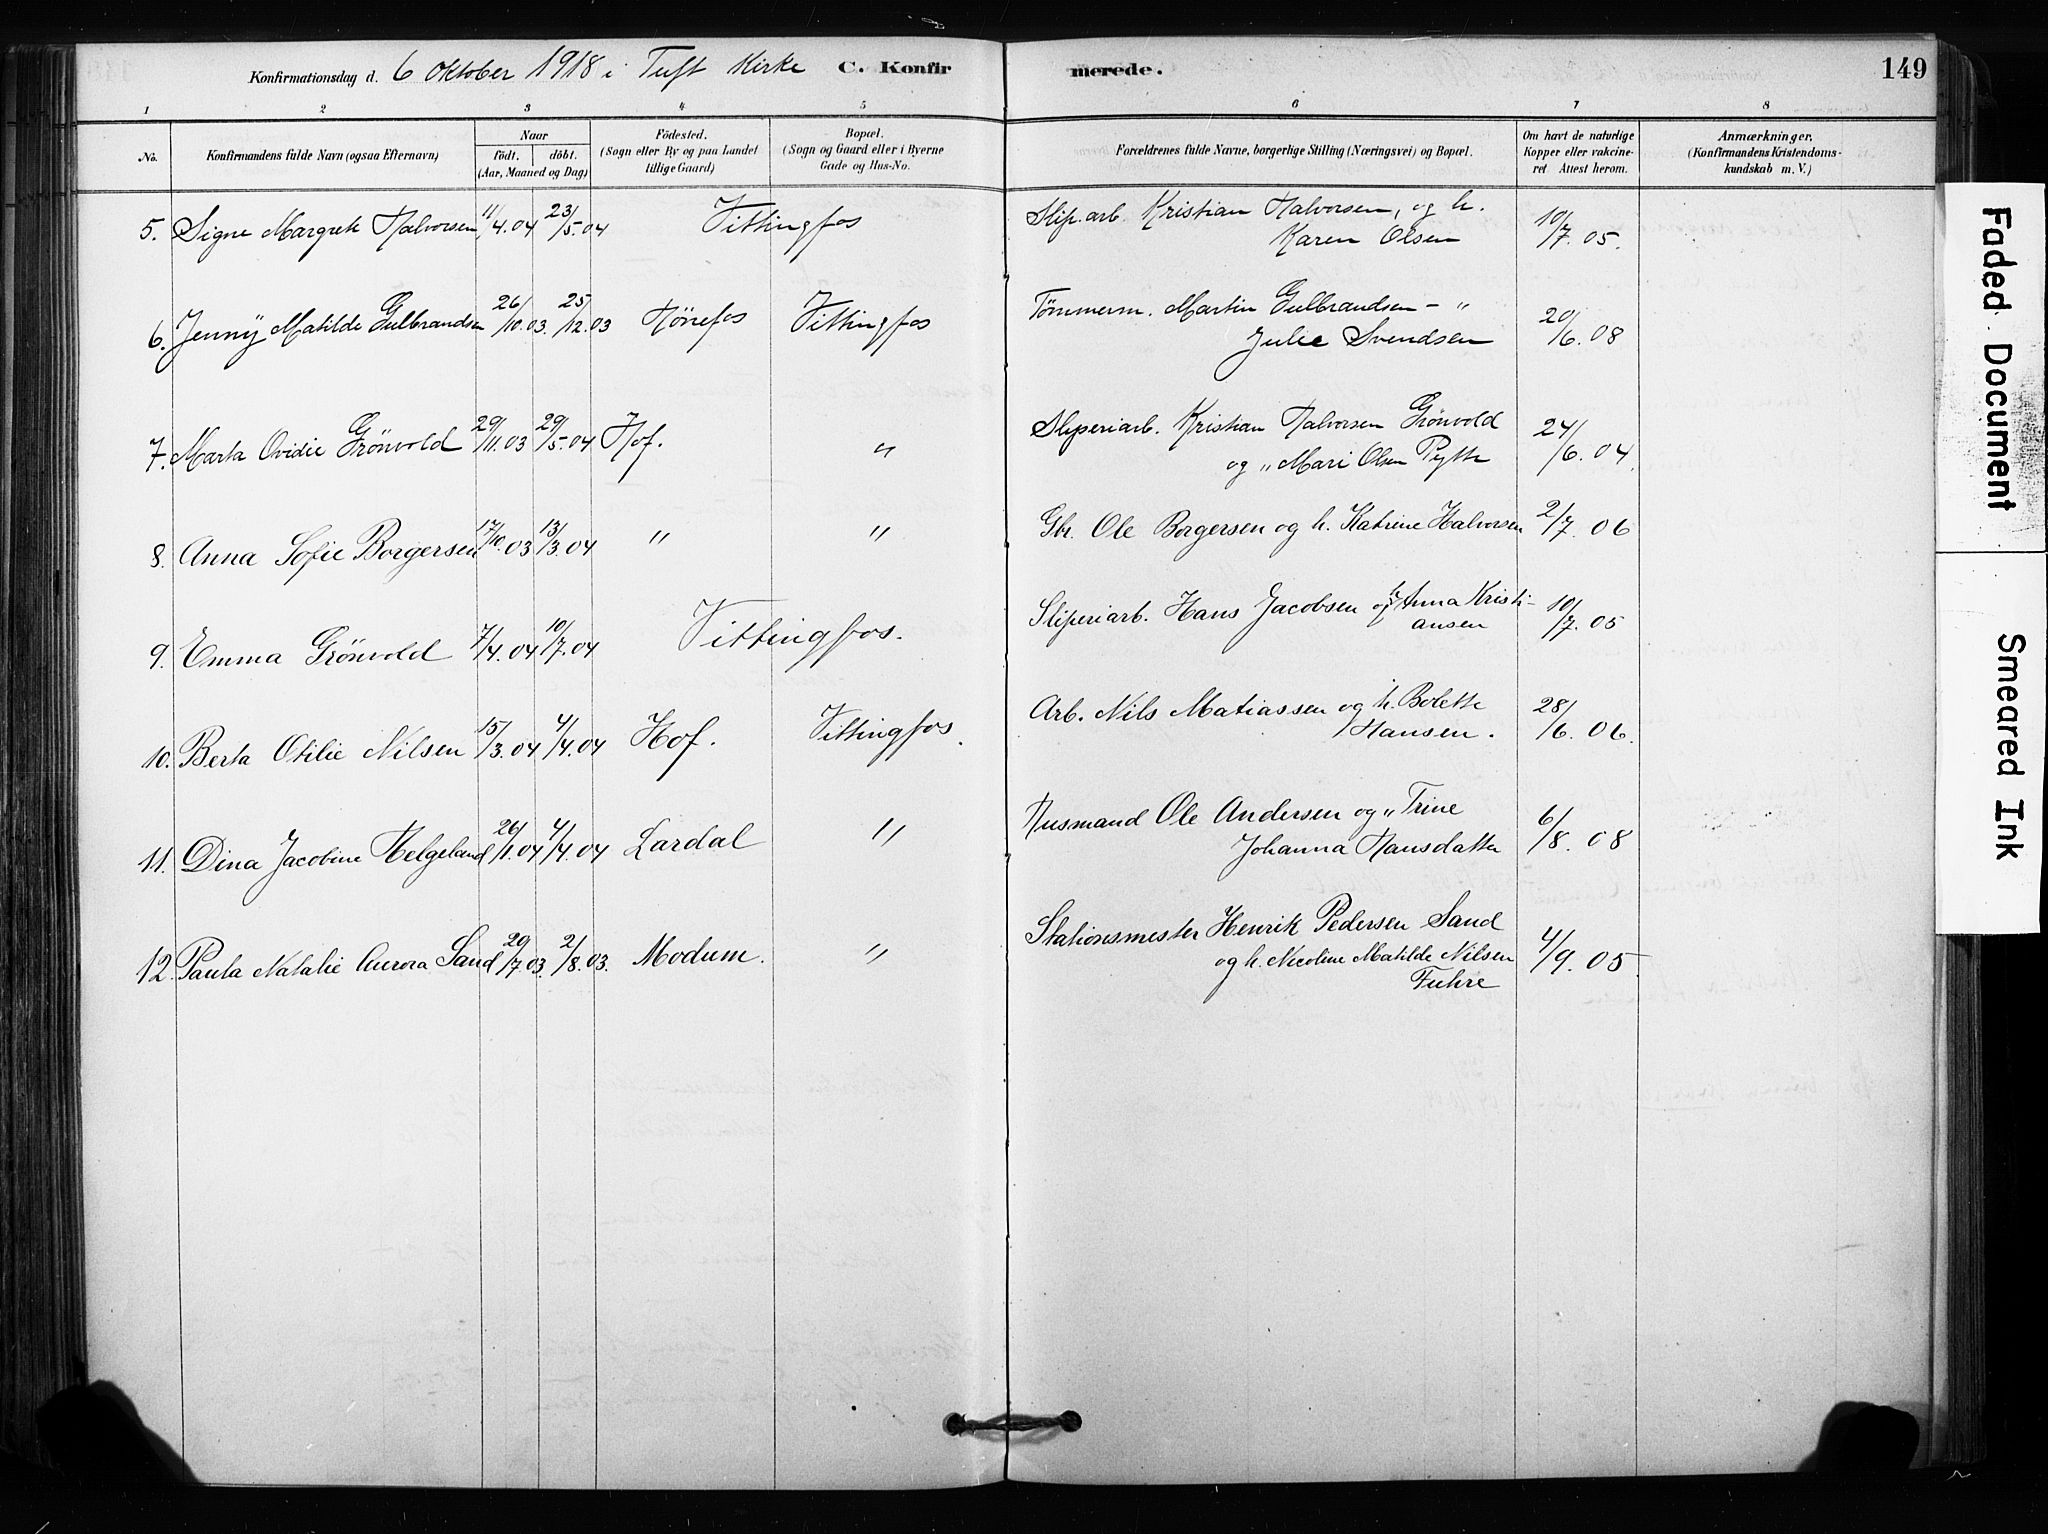 Konfirmationsdag d. 6 Oktober 1918 i Tuft Kirke C. Konfir merede. 149
1 2 3 4 5 6 7 8
No. Konfirmandens fulde Navn (ogsaa Efternavn) Naar födt. döbt. (Aar, Maaned og Dag) Födested. (Sogn eller By og paa Landet tillige Gaard) Bopæl. (Sogn og Gaard eller i Byerne Gade og Hus-No. Forældrenes fulde Navne, borgerlige Stilling (Næringsvei) og Bopæl. Om havt de naturlige Kopper eller vakcineret Attest herom. Anmærkninger. (Konfirmandens Kristendomskundskab m. V.)
5. Signe Margrete Halvorsen 11/4.04 23/5.04 Vittingfos Slip.arb. Kristian Halvorsen, og h. 10/7.05.
Karen Olsen
6. Jenny Matilde Gulbrandsen 26/10.03. 25/12.03 Hönefos Vittingfos Tømmerm. Martin Gulbrandsen - " 20/6.08
Julie Svendsen
7. Marta Ovidie Grönvold 29/11.03 29/5.04 Hof. " Sliperiarb. Kristian Halvorsen Grönvold 24/6.04.
og " Mari Olsen Pytte
8. Anna Sofie Borgersen 17/10.03 13/3.04 " " Gbr. Ole Borgersen og h. Katrine Halvorsen 2/7.06
9. Emma Grönvold 7/4.04 10/7.04 Vittingfos. Sliperiarb. Hans Jacobsen og h. Anna Kristi- 10/7.05
ansen
10. Berta Otilie Nilsen 15/3.04 4/4.04 Hof. Vittingfos. Arb. Nils Matiassen og h. Bolette 28/6.06.
Hansen.
11. Dina Jacobine Helgeland 26/1.04 4/4.04 Lardal " Husmand Ole Andersen og " Trine 6/8.08
Johanna Hansdatter
12. Paula Natalie Aurora Sand 29/7.03. 2/8.03. Modum. " Stationsmester Henrik Pedersen Sand 4/9.05
og h. Nicoline Matilde Nilsen
Fuhre
Faded Document
Smeared Ink